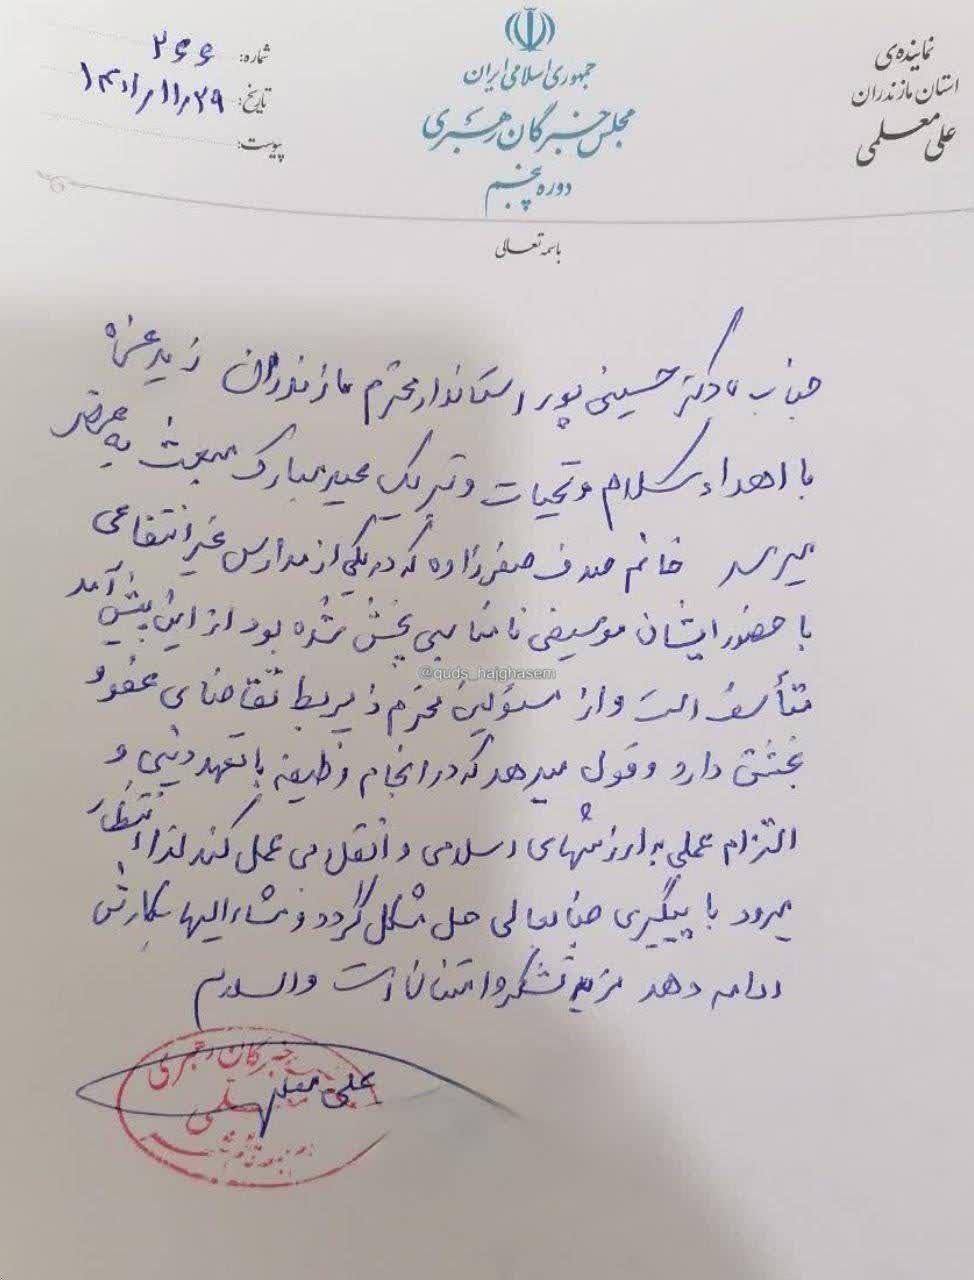 نماینده‌ی
استان مازندران
علی معلمی
جمهوری اسلامی ایران
مجلس خبرگان رهبری
دوره پنجم
شماره: ۲۶۶
تاریخ: ۱۴۰۱/۱۱/۲۹
پیوست:
باسمه تعالی
جناب دکتر حسینی پور استاندار محترم مازندران زید عزه
با اهداء سلام و تحیات و تبریک عید مبارک مبعث به عرض
میرسد خانم صدف صفرزاده که در یکی از مدارس غیر انتفاعی
با حضور ایشان موسیقی نامناسبی پخش شده بود از این پیش آمد
متأسف است و از مسئولین محترم ذیربط تقاضای عفو و
بخشش دارد و قول میدهد که در انجام وظیفه با تعهد دینی و
التزام عملی به ارزشهای اسلامی و انقلابی عمل کند لذا انتظار
میرود با پیگیری جنابعالی حل مشکل گردد و مشارالیها بکارش
ادامه دهد مزید تشکر و امتنان است والسلام
علی معلمی
خبرگان رهبری
@quds_hajghasem